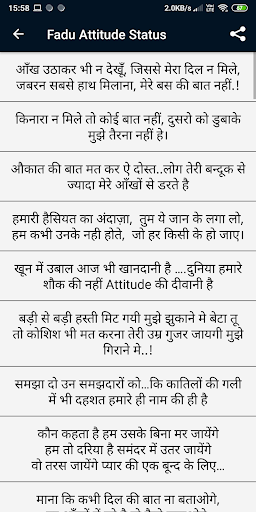 15:58
2.0KB/s
67
Fadu Attitude Status
आँख उठाकर भी न देखूँ, जिससे मेरा दिल न मिले,
जबरन सबसे हाथ मिलाना, मेरे बस की बात नहीं.!
किनारा न मिले तो कोई बात नहीं, दुसरो को डुबाके
मुझे तैरना नहीं है।
औकात की बात मत कर ऐ दोस्त..लोग तेरी बन्दूक से
ज्यादा मेरे आँखों से डरते है
हमारी हैसियत का अंदाज़ा,  तुम ये जान के लगा लो,
हम कभी उनके नही होते,  जो हर किसी के हो जाए।
खून में उबाल आज भी खानदानी है ....दुनिया हमारे
शौक की नहीं Attitude की दीवानी है
बड़ी से बड़ी हस्ती मिट गयी मुझे झुकाने मे बेटा तू
तो कोशिश भी मत करना तेरी उम्र गुजर जायगी मुझे
गिराने मे..!
समझा दो उन समझदारों को...कि कातिलों की गली
में भी दहशत हमारे ही नाम की ही है
कौन कहता है हम उसके बिना मर जायेंगे
हम तो दरिया है समंदर में उतर जायेंगे
वो तरस जायेंगे प्यार की एक बून्द के लिए...
माना कि कभी दिल की बात ना बताओगे,